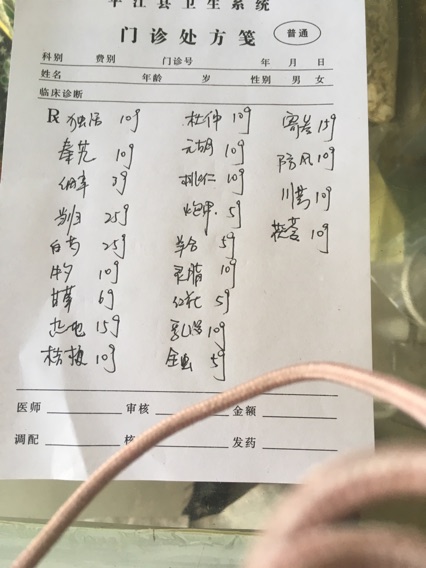 平江县卫生系统
门诊处方笺 普通
科别 费别 门诊号 年 月 日
姓名 年龄 岁 性别 男 女
临床诊断
R 独活 10g
秦艽 10g
细辛 3g
当归 25g
白芍 25g
牛夕 10g
甘草 6g
生地 15g
桂枝 10g
杜仲 10g
元胡 10g
桃仁 10g
炮甲 5g
草乌 5g
灵脂 10g
红花 5g
乳没 10g
全虫 5g
寄生 15g
防风 10g
川芎 10g
茯苓 10g
医师 审核 金额
调配 核 发药